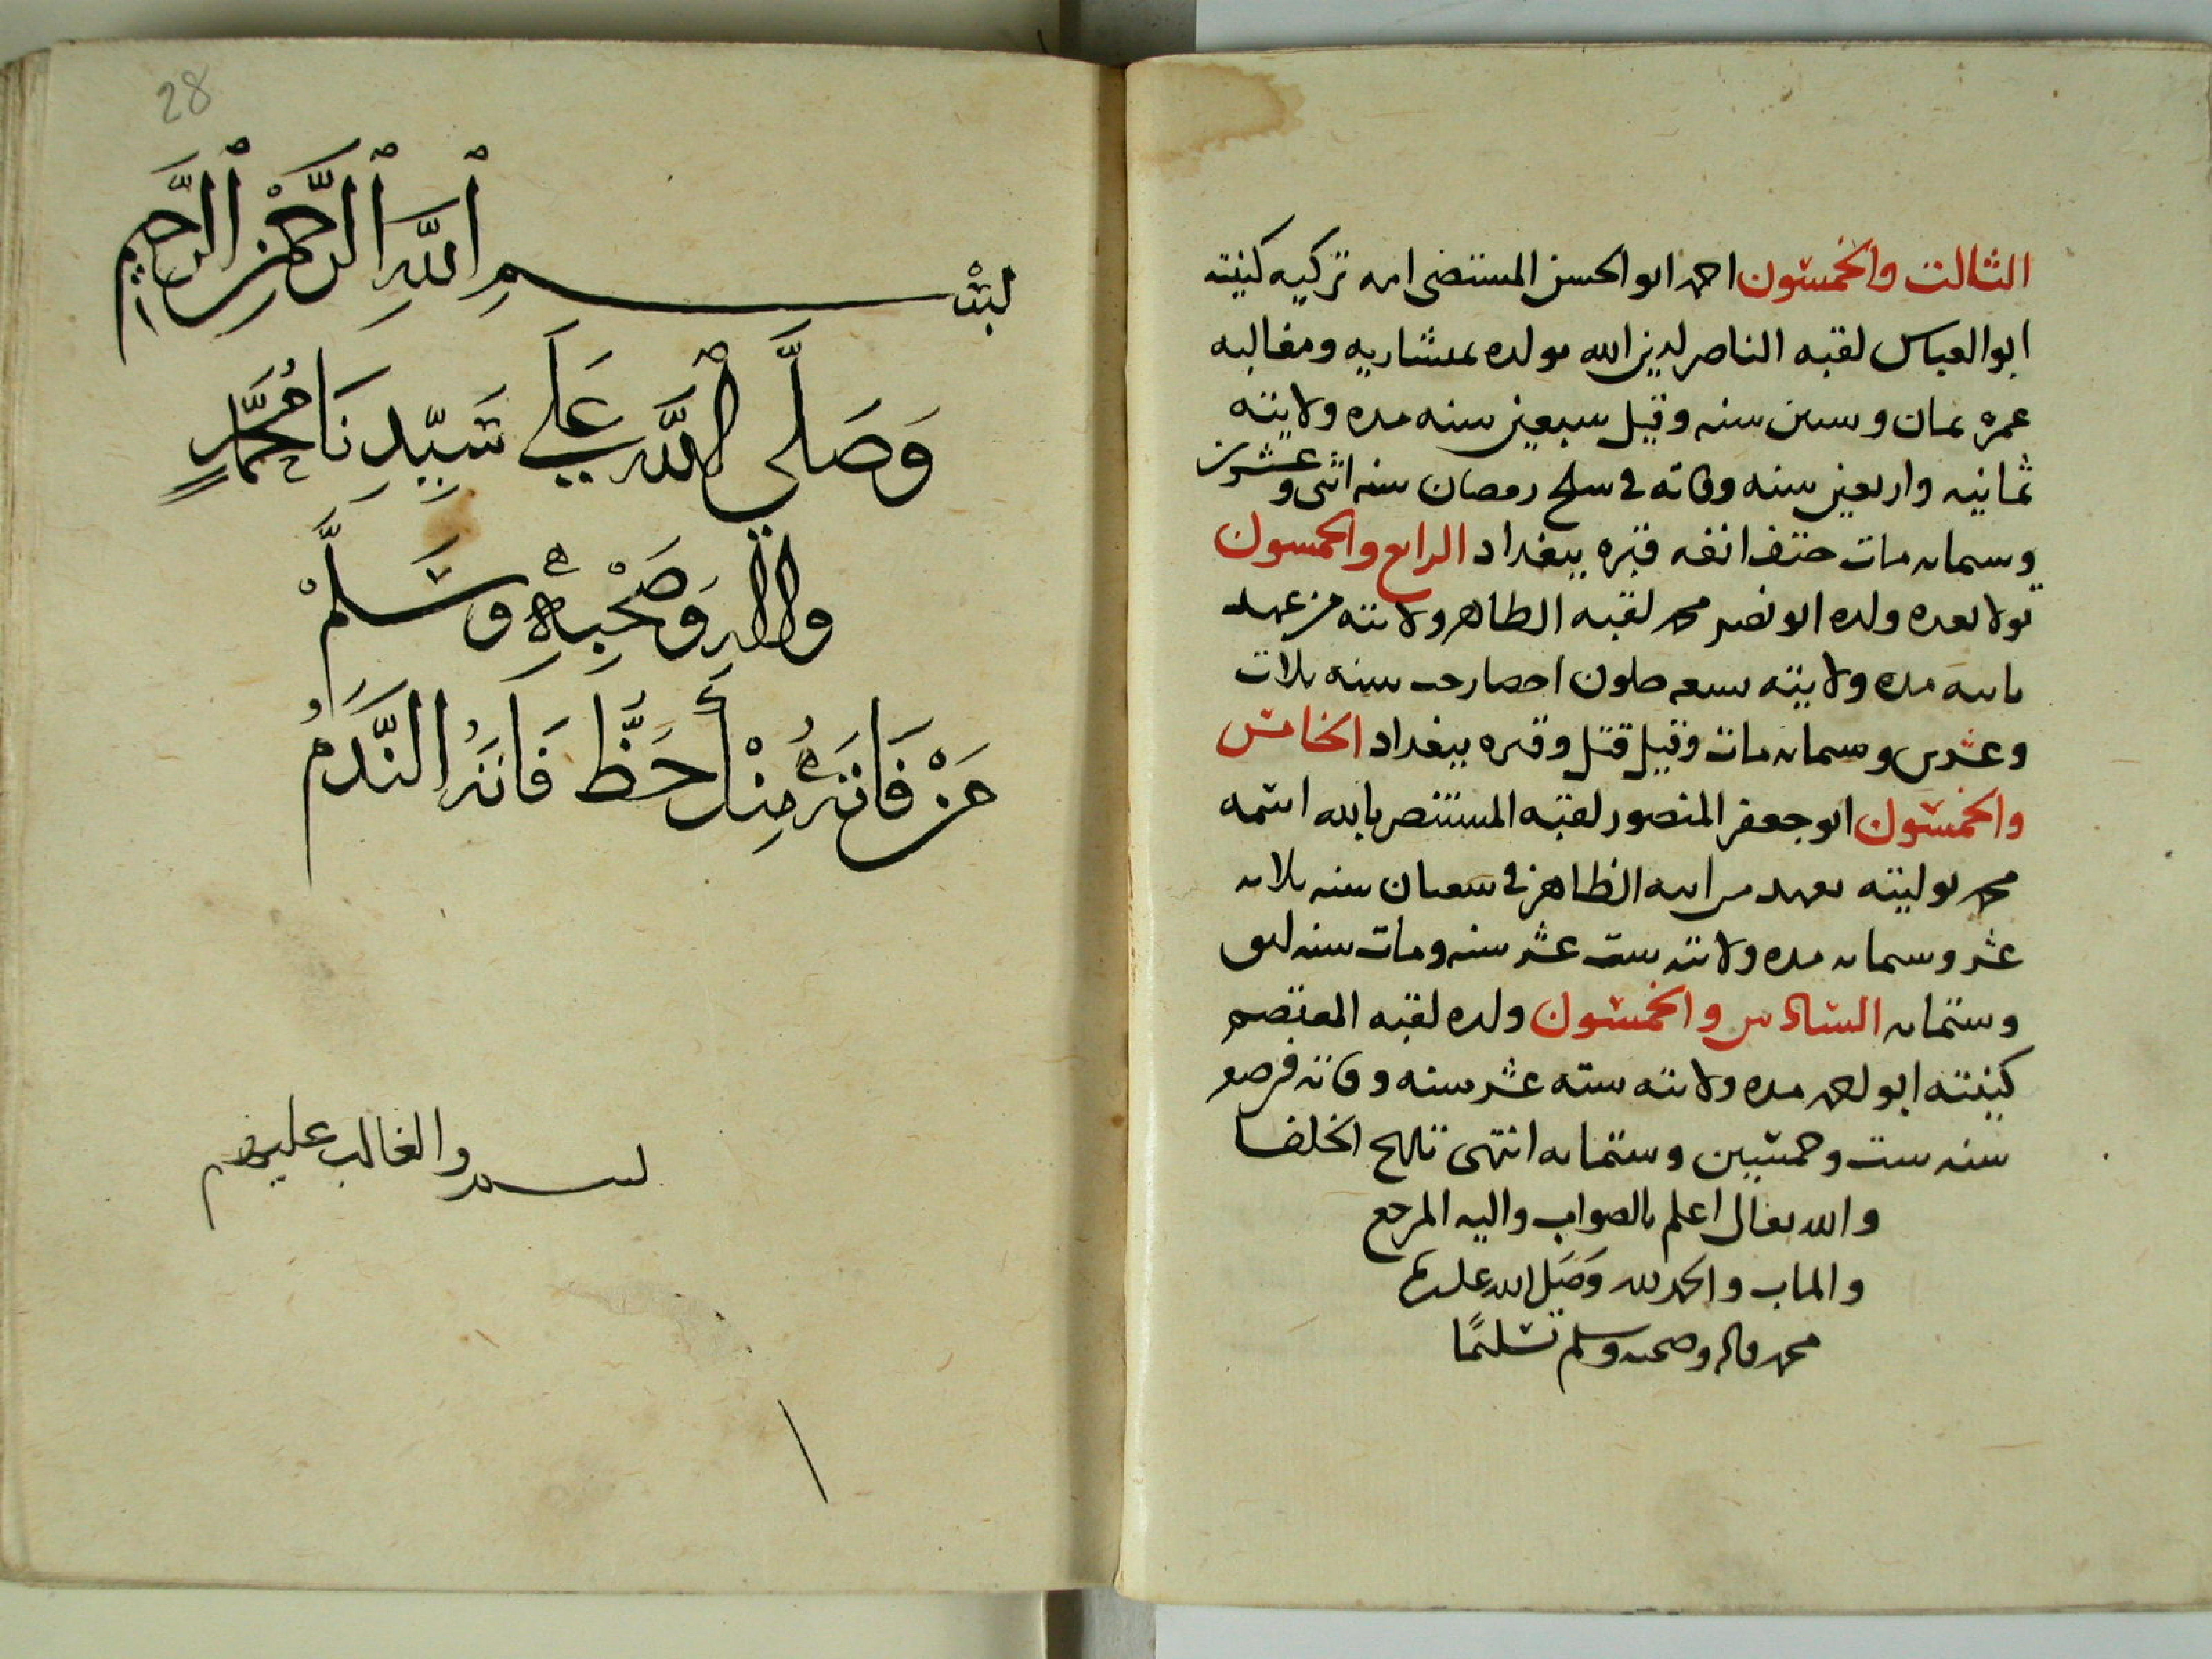 الثالث والخمسون احمد ابو الحسن المستضى امه تركيه كنيته
ابو العباس لقبه الناصر لدين الله مولده ومغالبه
عمره ثمان وستين سنه وقيل سبعين سنه مده ولايته
ثمانيه واربعين سنه وفاته في سلخ رمضان سنه اثنى وعشرين
وستمايه مات حتف انفه قبره ببغداد الرابع والخمسون
تولا بعده ولده ابو نصر محمد لقبه الظاهر ولايته من عهد
مده ولايته سنه ثلاث
وعشرين وستمايه مات وقيل قتل وقبره ببغداد الخامس
والخمسون ابو جعفر المنصور لقبه المستنصر بالله اسمه
محمد توليته بعهد من ابيه الظاهر في شعبان سنه ثلاثه
عشر وستمايه مده ولايته ست عشر سنه ومات سنه
وستمايه السادس والخمسون ولده لقبه المعتصم
كنيته ابو مده ولايته سته عشر سنه وفاته
سنه ست وخمسين وستمايه انتهى الخلفا
والله تعالى اعلم بالصواب واليه المرجع
والماب والحمد لله وصلى الله على
محمد واله وصحبه وسلم تسليما
28
بسم الله الرحمن الرحيم
وَصَلَّى الله عَلَى سَيِّدِنَا مُحَمَّدٍ
واله وَصَحْبِهِ وَسَلَّمْ
مَنْ فَاتَهُ مِنْكَ حَظٌّ فَاتَهُ النَّدَمُ